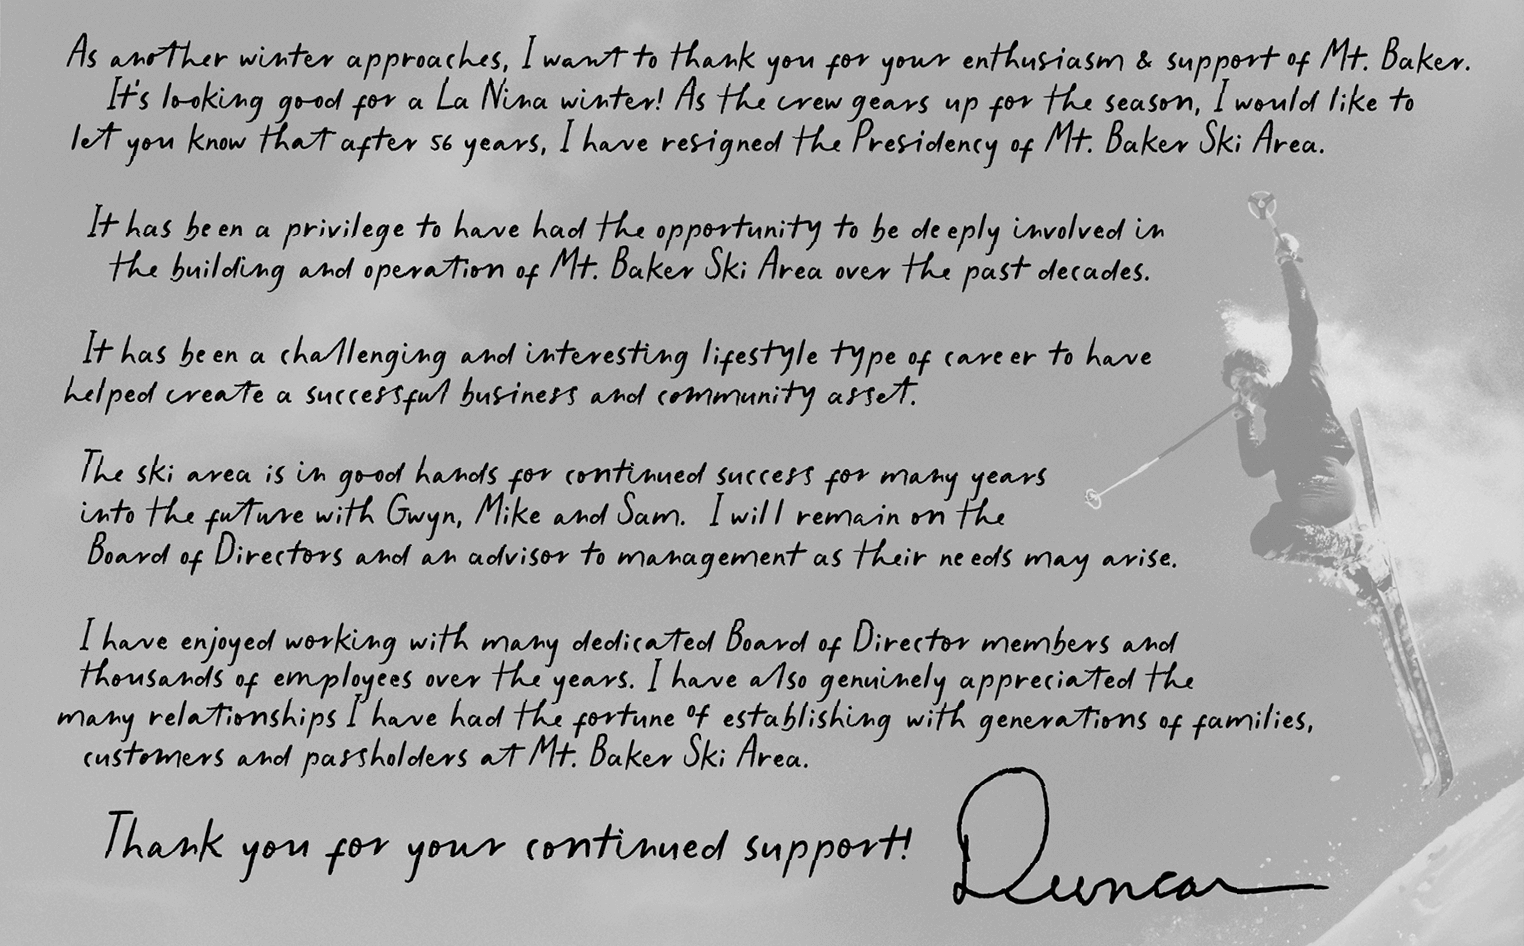 As another winter approaches, I want to thank you for your enthusiasm & support of Mt. Baker.
It's looking good for a La Nina winter! As the crew gears up for the season, I would like to
let you know that after 56 years, I have resigned the Presidency of Mt. Baker Ski Area.
It has been a privilege to have had the opportunity to be deeply involved in
the building and operation of Mt. Baker Ski Area over the past decades.
It has been a challenging and interesting lifestyle type of career to have
helped create a successful business and community asset.
The ski area is in good hands for continued success for many years
into the future with Gwyn, Mike and Sam. I will remain on the
Board of Directors and an advisor to management as their needs may arise.
I have enjoyed working with many dedicated Board of Director members and
thousands of employees over the years. I have also genuinely appreciated the
many relationships I have had the fortune of establishing with generations of families,
customers and passholders at Mt. Baker Ski Area.
Thank you for your continued support!
Duncan